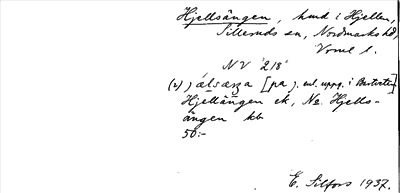 Hjellsängen, hmd i Hjellen,
Silleruds sn, Nordmarks hd,
Vrml l.
NV 218
(2) jälsæŋa [på j. enl. uppg. i Bastvåten]
Hjellängen ek, Nr. Hjells-
ängen kb
50:-
E. Silfors 1937.